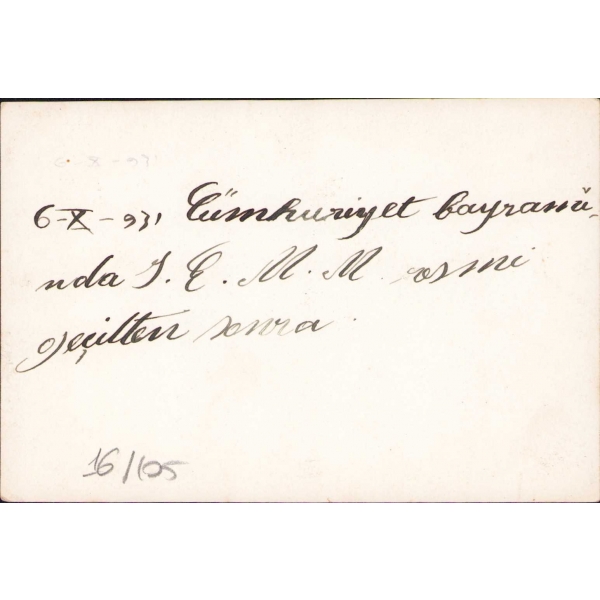 6-X-931 Cümhuriyet bayramı-
nda I. E. M. M. resmi
geçitten sonra.
16/105